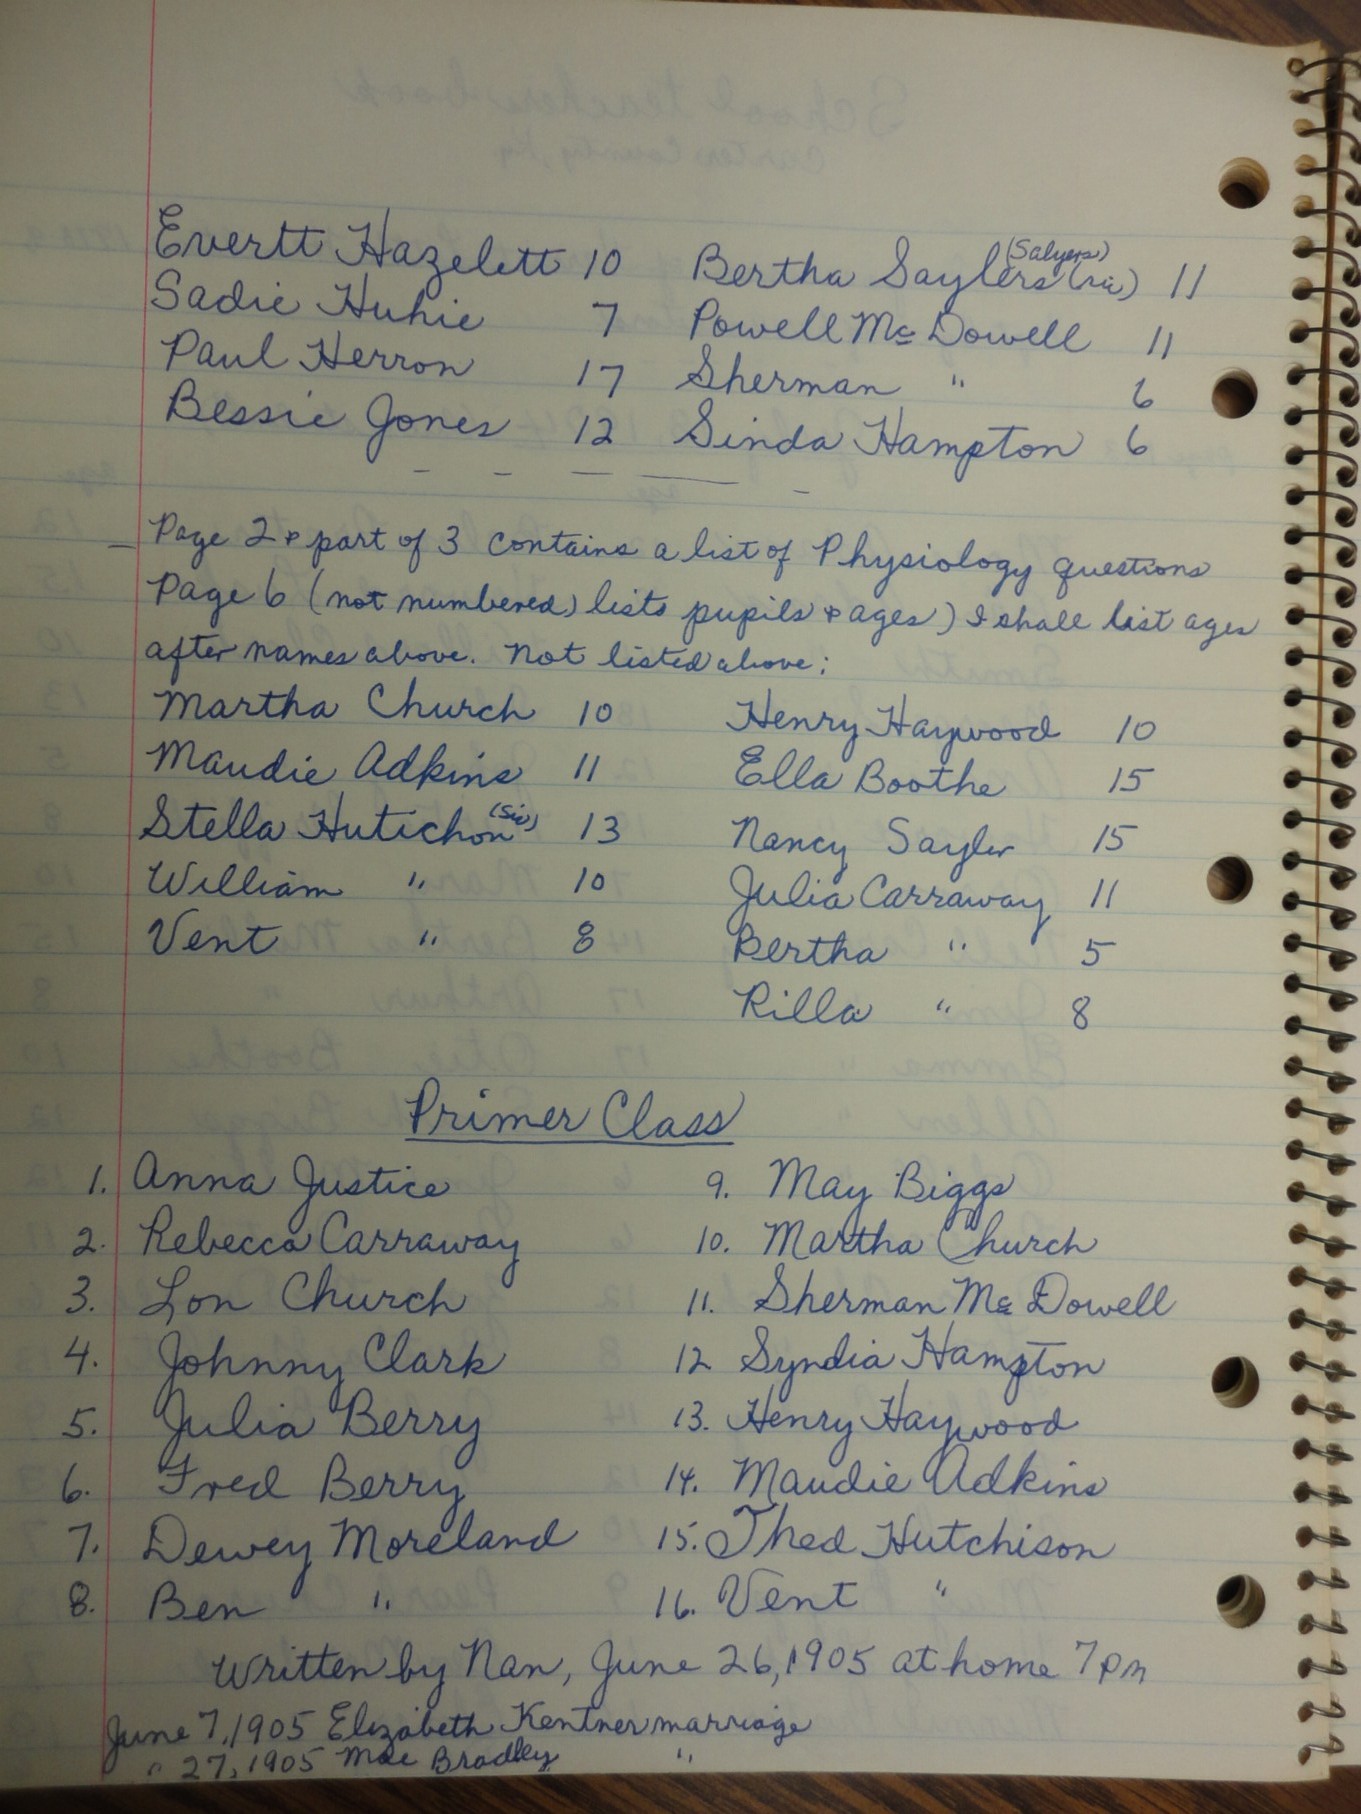 Evertt Hazelett 10 Bertha Saylers (Salyers) (sic) 11
Sadie Huhie 7 Powell Mc Dowell 11
Paul Herron 17 Sherman " 6
Bessie Jones 12 Sinda Hampton 6
Page 2 & part of 3 contains a list of Physiology questions
Page 6 (not numbered) lists pupils & ages) I shall list ages
after names above. Not listed above:
Martha Church 10 Henry Haywood 10
Maudie Adkins 11 Ella Boothe 15
Stella Hutichon (sic) 13 Nancy Sayler 15
William " 10 Julia Carraway 11
Vent " 8 Bertha " 5
Rilla " 8
Primer Class
1. Anna Justice 9. May Biggs
2. Rebecca Carraway 10. Martha Church
3. Lon Church 11. Sherman Mc Dowell
4. Johnny Clark 12 Syndia Hampton
5. Julia Berry 13. Henry Haywood
6. Fred Berry 14. Maudie Adkins
7. Dewey Moreland 15. Thed Hutchison
8. Ben " 16. Vent "
Written by Nan, June 26, 1905 at home 7 pm
June 7, 1905 Elizabeth Kentner marriage
" 27, 1905 Mae Bradley "